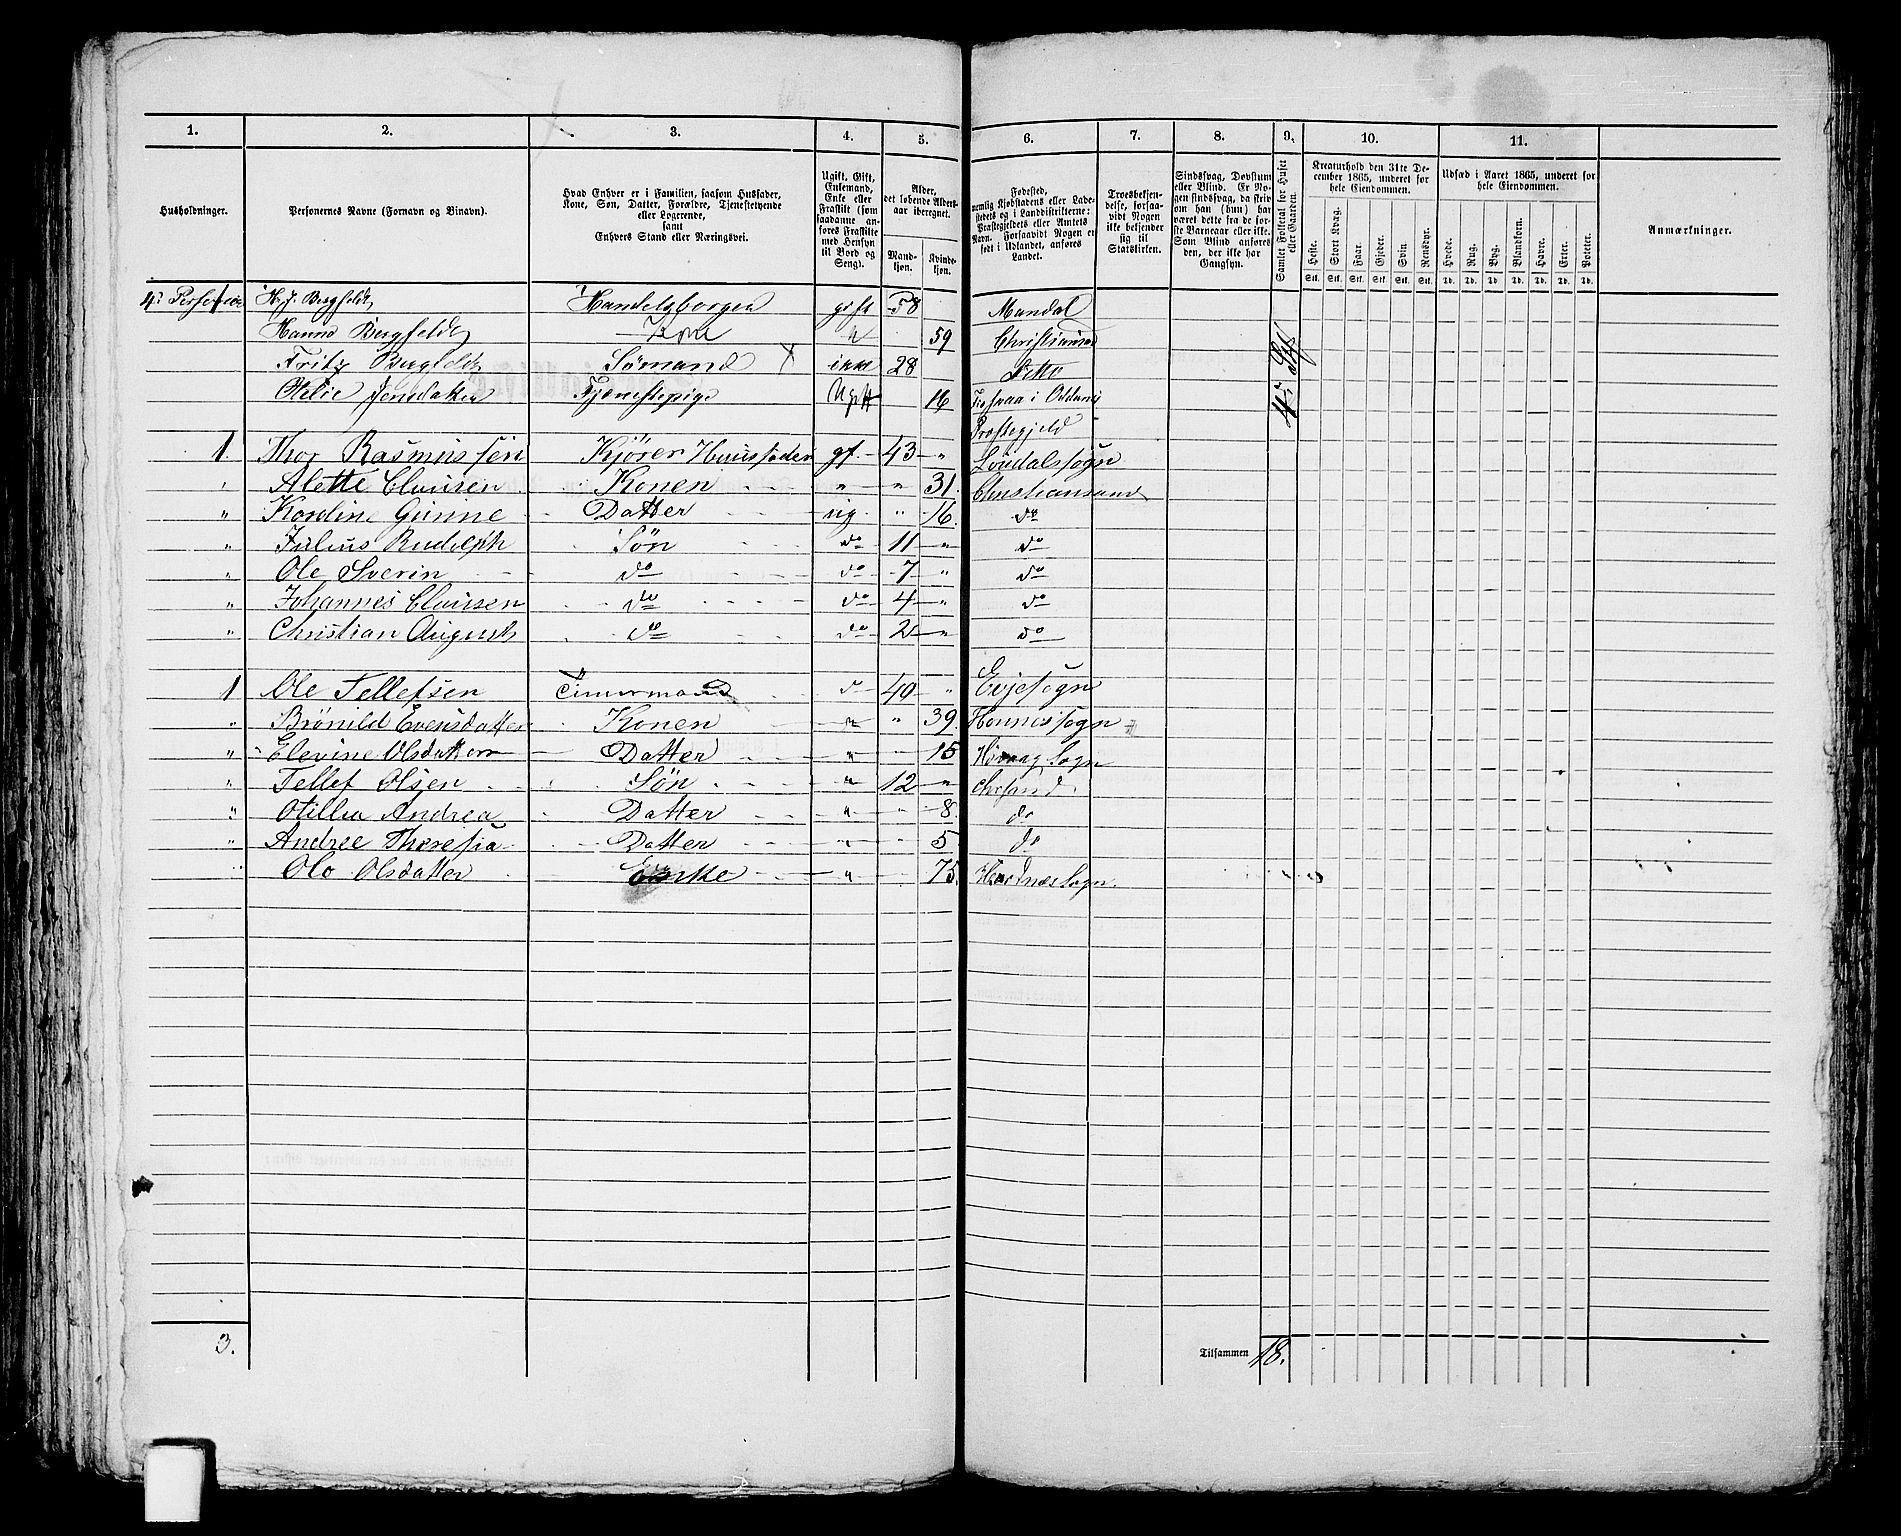 1. 2. 3. 4. 5. 6. 7. 8. 9. 10. 11.
Husholdninger.
Personernes Navne (Fornavn og Binavn).
Hvad Enhver er i Familien, saasom Husfader, Kone, Søn, Datter, Forældre, Tjenestetyende eller Logerende, samt Enhvers Stand eller Næringsvei.
Ugift, Gift, Enkemand, Enke eller Fraskilt (som saadanne anføres Fraskilte med Hensyn til Bord og Seng).
Alder, det løbende Aldersaar iberegnet.
Mandkjøn. Kvindekjøn.
Fødested, nemlig Kjøbstadens eller Ladestedets og i Landdistrikterne: Præstegjeldets eller Amtets Navn. Forsaavidt Nogen er født i Udlandet, anføres Landet.
Troesbekjendelse, forsaavidt Nogen ikke bekjender sig til Statskirken.
Sindssvag, Døvstum eller Blind. Er Nogen sindssvag, da skrives om han (hun) har været dette fra de første Barneaar eller ikke. Som Blind anføres den, der ikke har Gangsyn.
Samlet Folketal for Huset eller Gaarden.
Kreaturhold den 31te December 1865, underet for hele Eiendommen.
Heste. Stort Kvæg. Faar. Gjeder. Svin. Rensdyr.
Stk. Stk. Stk. Stk. Stk. Stk.
Udsæd i Aaret 1865, underet for hele Eiendommen.
Hvede. Rug. Byg. Blandkorn. Havre. Erter. Poteter.
Td. Td. Td. Td. Td. Td. Td.
Anmærkninger.
4 Personer H. J. Bergfeldt Handelsborger gift 58 Mandal
Hanna Bergfeldt Kone 59 Christiansand
Fritz Bergfeldt Sømand X ikke 28 Ditto
Otelie Jensdatter Tjenestepige Ugift 16 i Oddernes
Præstegjeld
1. Thor Rasmussen Kjører Huusfader gf. 43 " Loudalssogn
" Alette Clausen Konen " " 31. Christiansand
" Kordine Gunne Datter ug " 16. do
" Julius Rudolph Søn do 11 " do
" Ole Sverin do do 7 " do
" Johannes Clausen do do 4 " do
" Christian August do do 2 " do
1 Ole Tellefsen Timermand do 40 " Evjesogn
" Brönild Evensdatter Konen " " 39.
" Elevine Olsdatter Datter " 15 Sogn
" Tellef Olsen Søn " 12 " Chrsand
" Otillia Andrea Datter " 8. do
" Andree Theresia Datter " 5 do
" Olo Olsdatter Enke " 75. Sogn.
3.
Tilsammen 18.